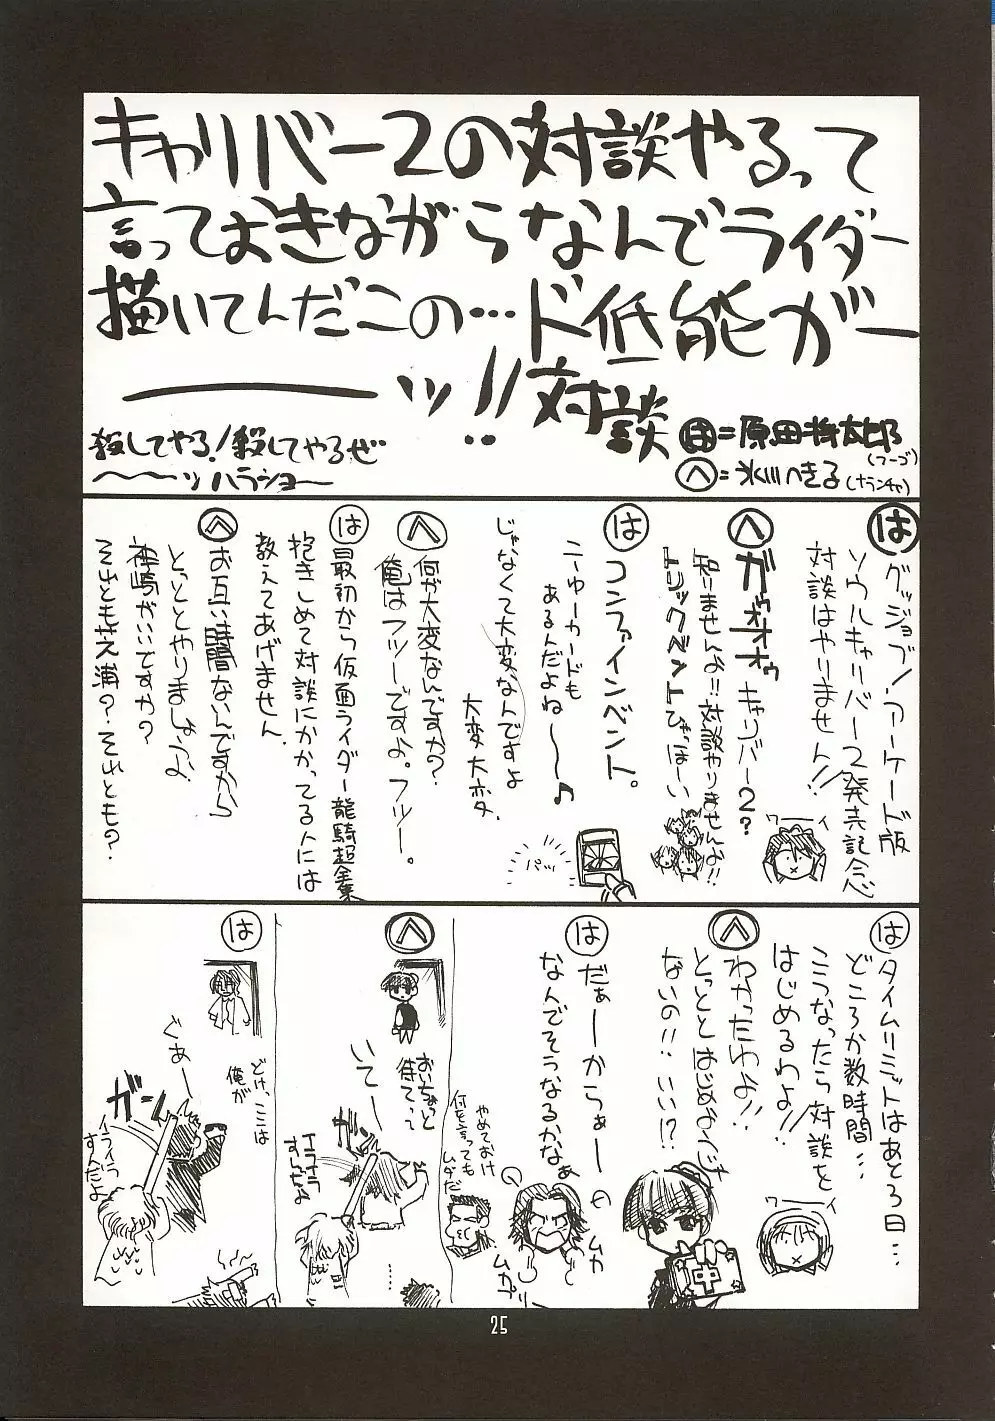 キャリバー2の対談やるって
言っておきながらなんでライダー
描いてんだこの…ド低能がー
ーーーッ!!対談
殺してやる!殺してやるぜ
〜〜〜ッハラショー
は=原田将太郎
(フーゴ)
へ=氷川へきる(ナランチャ)
は
グッジョブ!アーケード版
ソウルキャリバー2発売記念
対談はやりません!!
ワーイ
へ
ガゥオオオゥキャリバー2?
知りませんよ!!対談やりませんよ!!
トリックベントひゃほーい
は
コンファインベント。
ニューカードも
あるんだよね〜〜♪
じゃなくて大変なんですよ
大変大変
パッ
へ
何が大変なんですか?
俺はフツーですよ。フツー。
は
最初から仮面ライダー龍騎超全集
抱きしめて対談にかかってる人には
教えてあげません。
へ
お互い時間ないんですから
とっととやりましょうよ
神崎がいいですか?
それとも芝浦?それとも?
は
タイムリミットはあと3日…
どころか数時間…
こうなったら対談を
はじめるわよ!!
ワーイ
へ
わかったわよ!!
とっととはじめればいいじゃ
ないの!!いい!?
中
は
だぁーーからぁーー
なんでそうなるかなぁ
ムカ
ムカ
やめておけ
何を言っても
ムダだ
へ
おいちょっと
待て…
いてー
イライラ
すんだよ
……
は
どけ、ここは
俺が
ぐぁー
ガン
イライラ
すんだよ
25